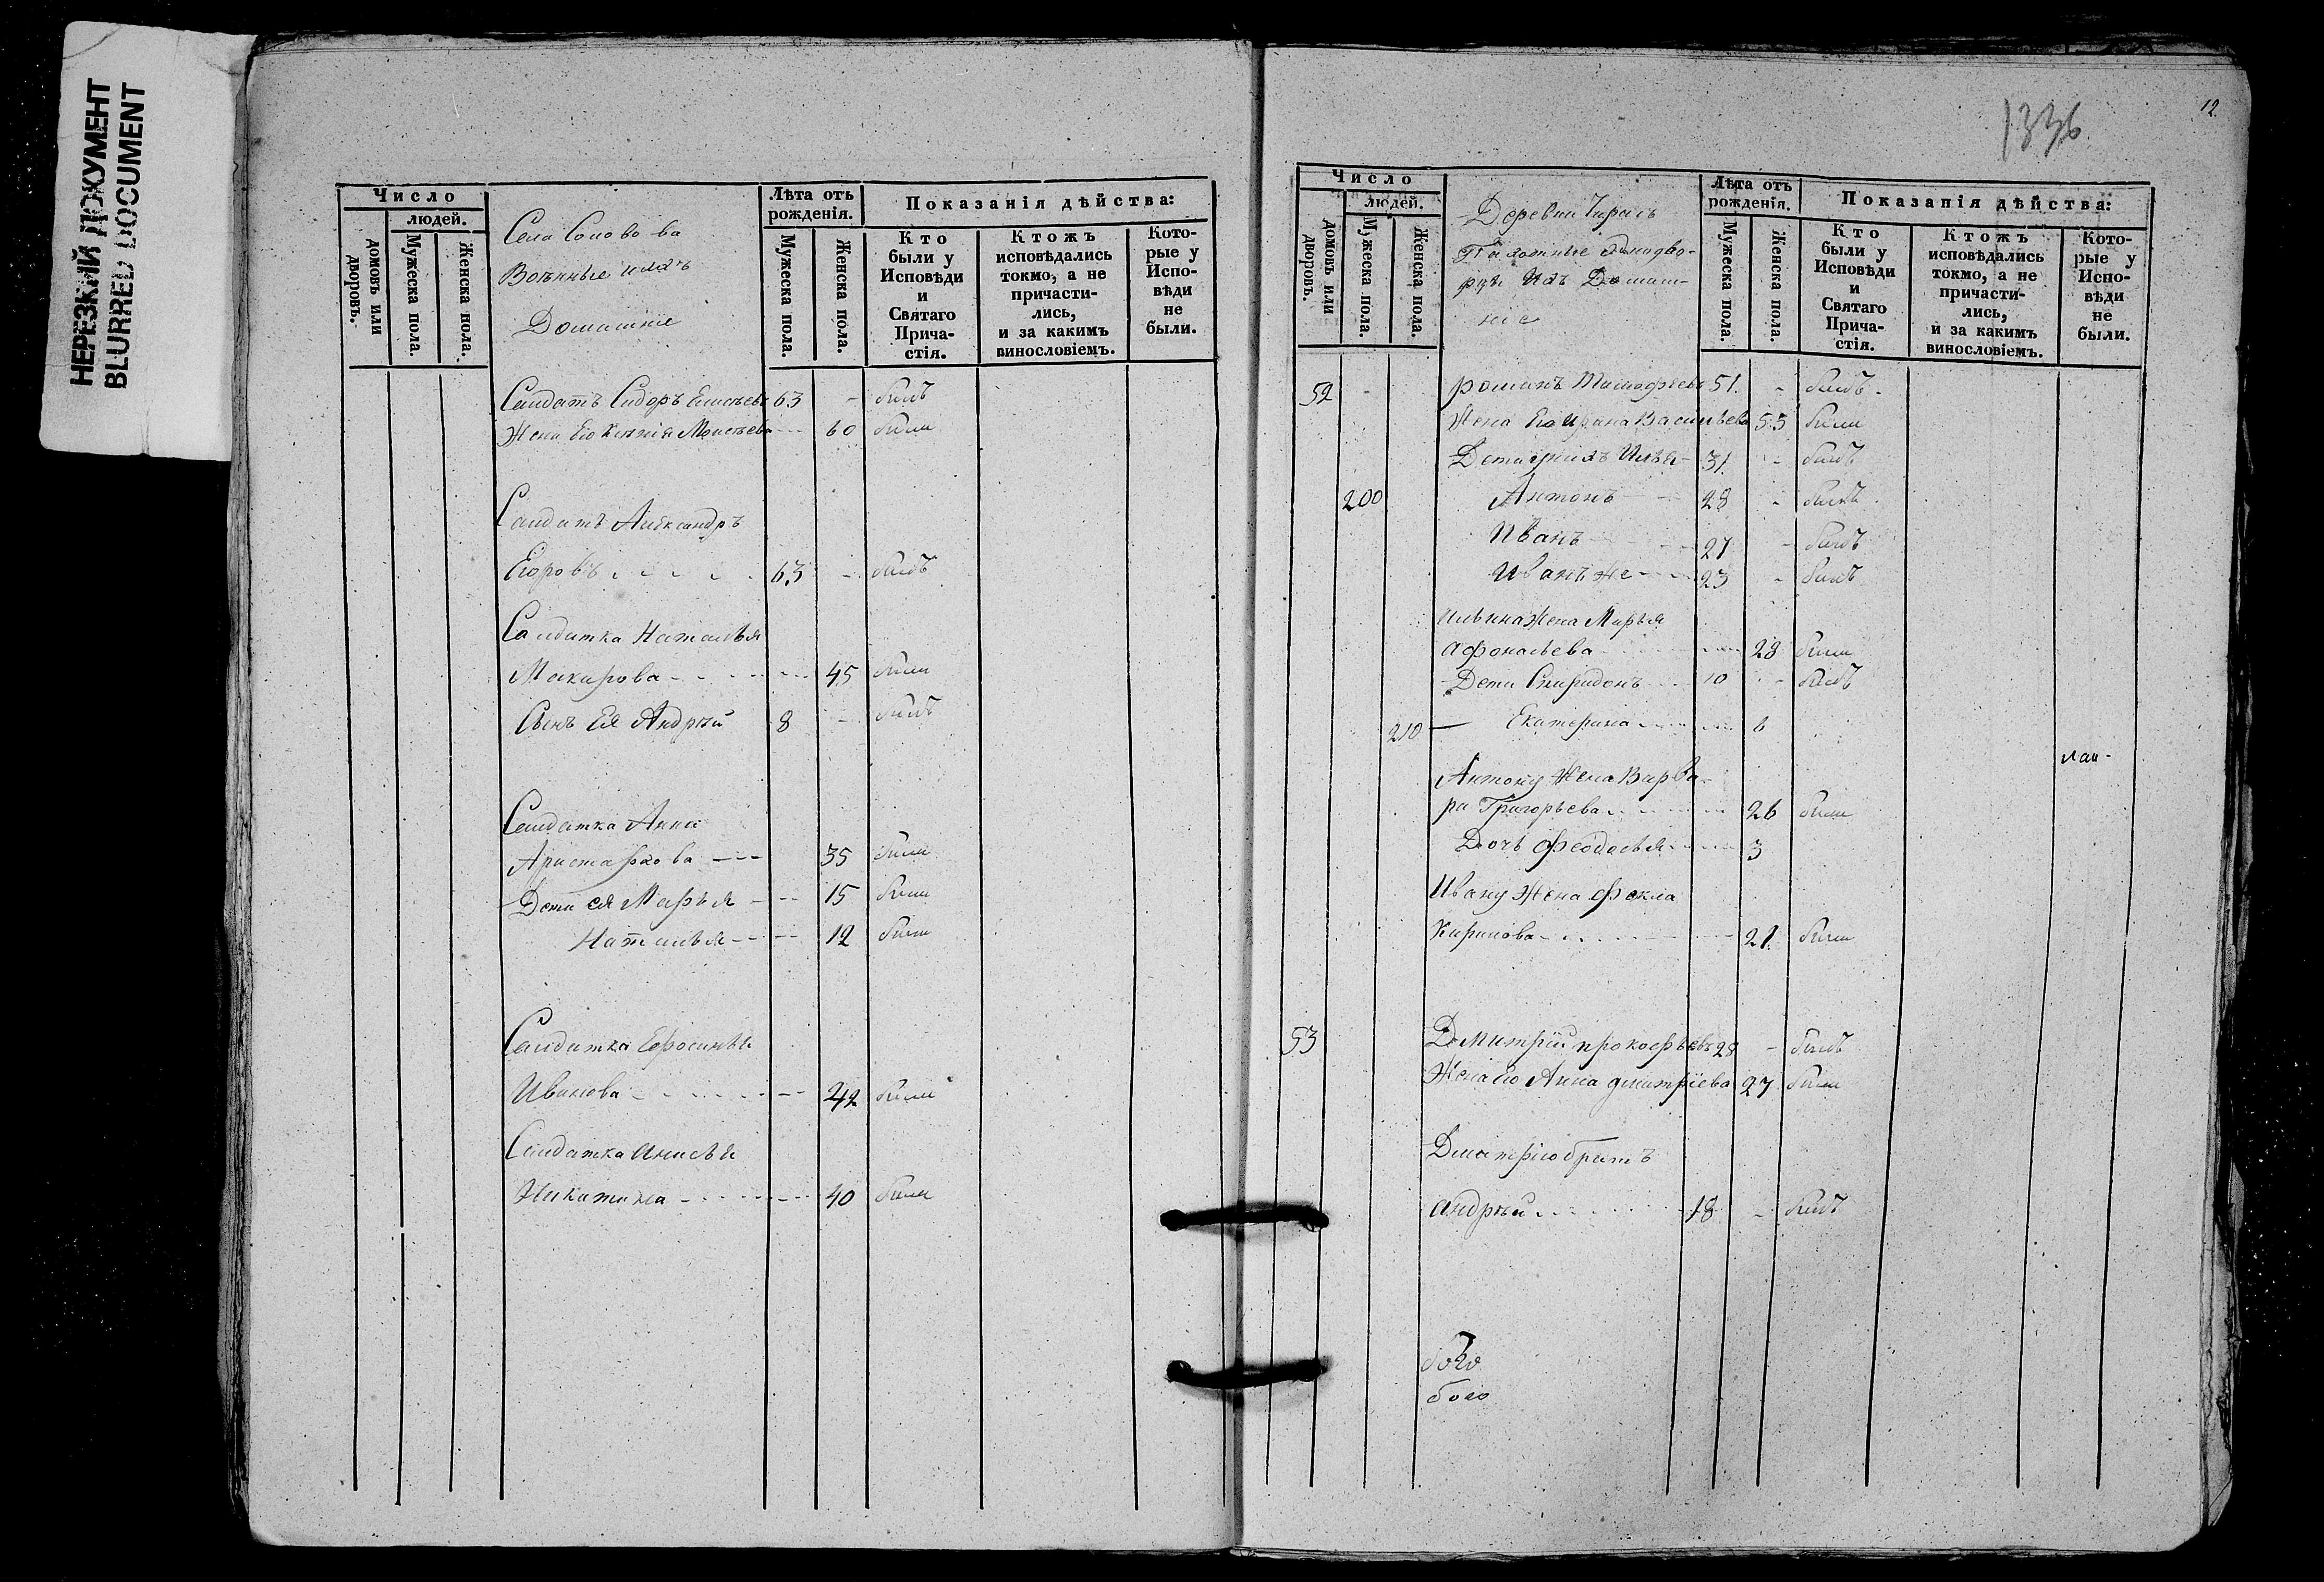 НЕРЕЗКИЙ ДОКУМЕНТ
BLURRED DOCUMENT
Число
людей.
домовъ или дворовъ.
Мужеска пола.
Женска пола.
Села
Военные ихъ
Домашние
Лѣта отъ рожденія.
Мужеска пола.
Женска пола.
Показанія дѣйства:
Кто были у Исповѣди и Святаго Прича-стія.
Ктожъ исповѣдались токмо, а не причасти-лись, и за какимъ винословіемъ.
Кото-рые у Испо-вѣди не были.
Салдатъ Сидоръ Елисѣевъ 63 - былъ
Жена Его Ксения Моисѣева 60 была
Салдатъ Александръ
Егоровъ 63 - былъ
Салдатка Наталья
Макарова 45 была
Сынъ Ея Андрей 8 - былъ
Салдатка Анна
Аристархова 35 была
Дети ея Марья 15 была
Наталья 12 была
Салдатка Ефросинья
Иванова 42 была
Салдатка Анисья
Никитина 40 была
1336
12
Число
людей.
домовъ или дворовъ.
Мужеска пола.
Женска пола.
Деревни
однодво-
рцы Ихъ Домаш-
ние
Лѣта отъ рожденія.
Мужеска пола.
Женска пола.
Показанія дѣйства:
Кто были у Исповѣди и Святаго Прича-стія.
Ктожъ исповѣдались токмо, а не причасти-лись, и за какимъ винословіемъ.
Кото-рые у Испо-вѣди не были.
52 - романъ Тимофѣевъ 51. - былъ
Жена Его Ирина Васильева 55 была
Дети ихъ Илья 31 - былъ
200 Антонъ 28 - былъ
Иванъ 27 - былъ
Иванъ же 23 - былъ
Ильина Жена Марья
Афонасьева 28 была
Дети Спиридонъ 10 - былъ
210 Екатерина 6
Антону Жена Варва-
ра Григорьева 26 была
Дочь Феодосья 3
Ивану Жена Фекла
Карпова 21 была
53 Дмитрий прокофьевъ 28 - былъ
Жена Его Анна дмитриева 27 была
Дмитрию братъ
андрей 18 - былъ